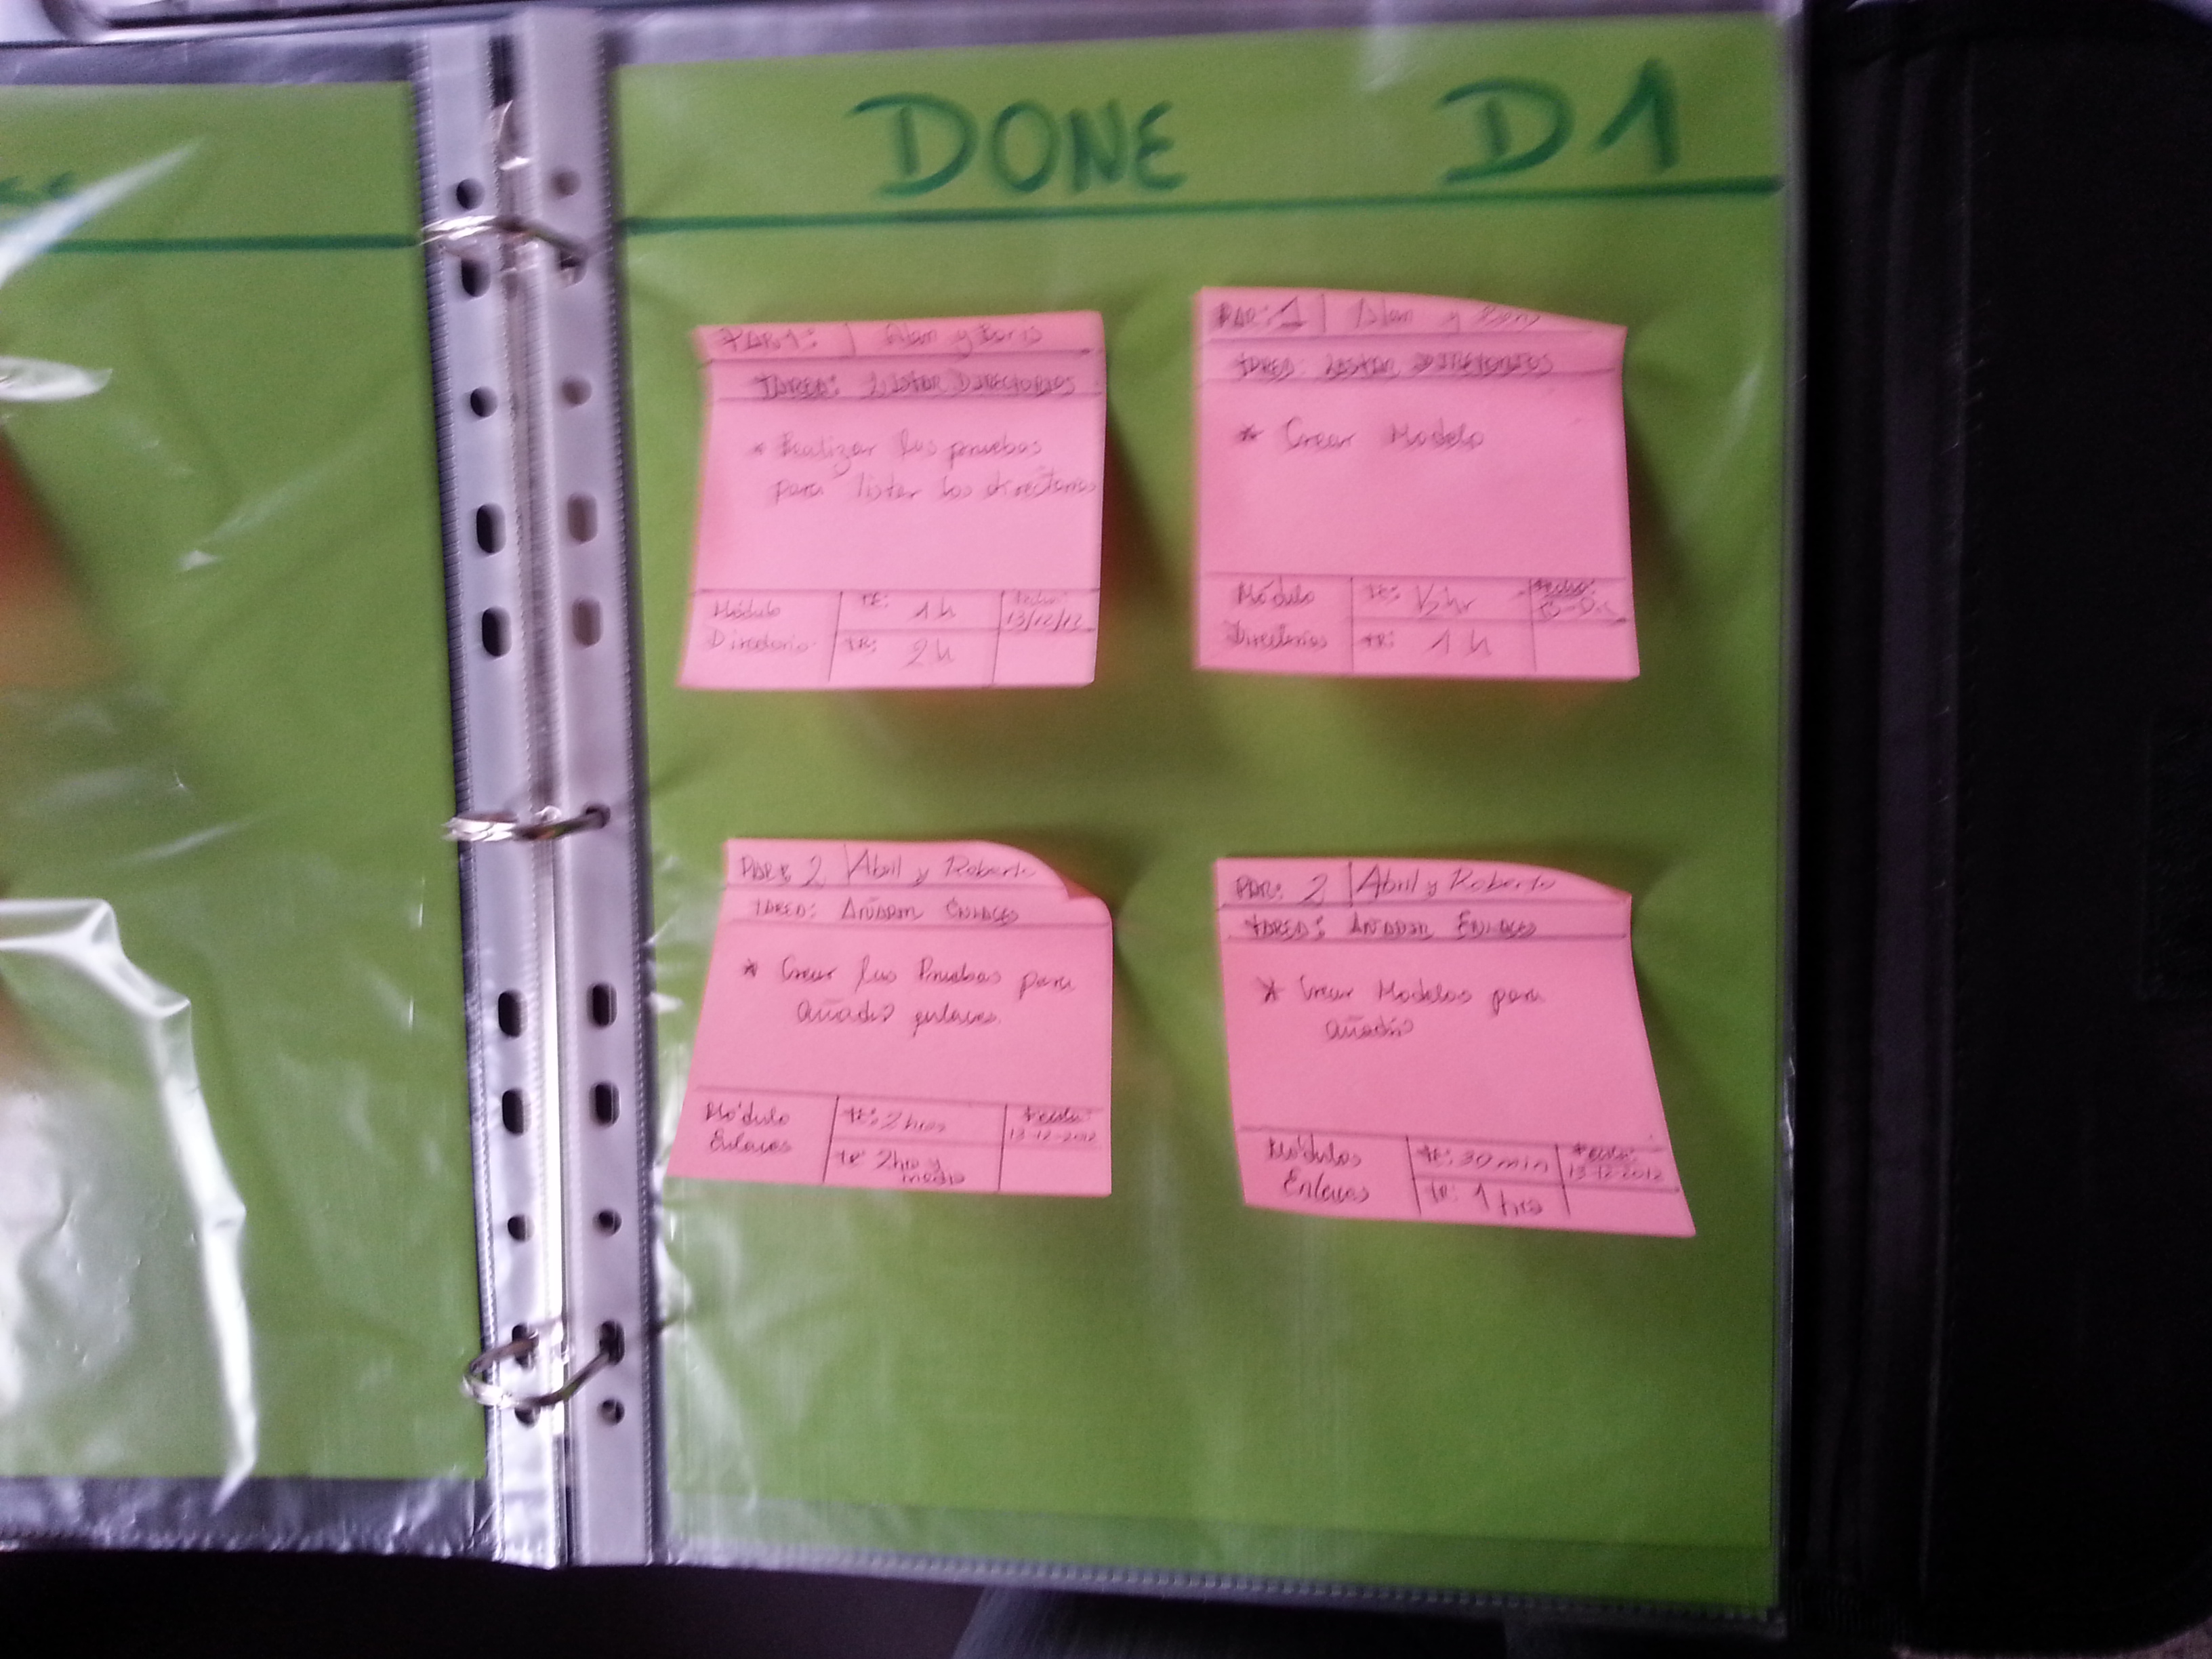 DONE D1
PAR1: Alan y Boris
TAREA: LISTAR DIRECTORIOS
* Realizar las pruebas
para listar los directorios
Módulo
Directorio
TE: 1h
TR: 2h
Fecha:
13/12/12
PAR: 1 Alan y Boris
TAREA: LISTAR DIRECTORIOS
* Crear Modelo
Módulo
Directorios
TE: 1/2 hr
TR: 1 h
Fecha:
PAR: 2 Abril y Roberto
TAREA: AÑADIR ENLACES
* Crear las Pruebas para
añadir enlaces.
Módulo
Enlaces
TE: 2 hrs
TR: 2hrs y
medio
Fecha:
13-12-2012
PAR: 2 Abril y Roberto
TAREA: AÑADIR ENLACES
* Crear Modelos para
añadir
Módulos
Enlaces
TE: 30 min
TR: 1 hrs
Fecha:
13-12-2012